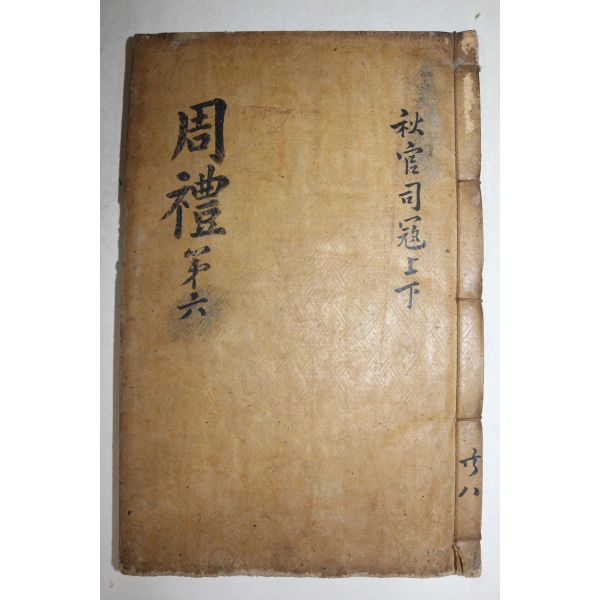 周禮 第六
秋官司冦上下
共八